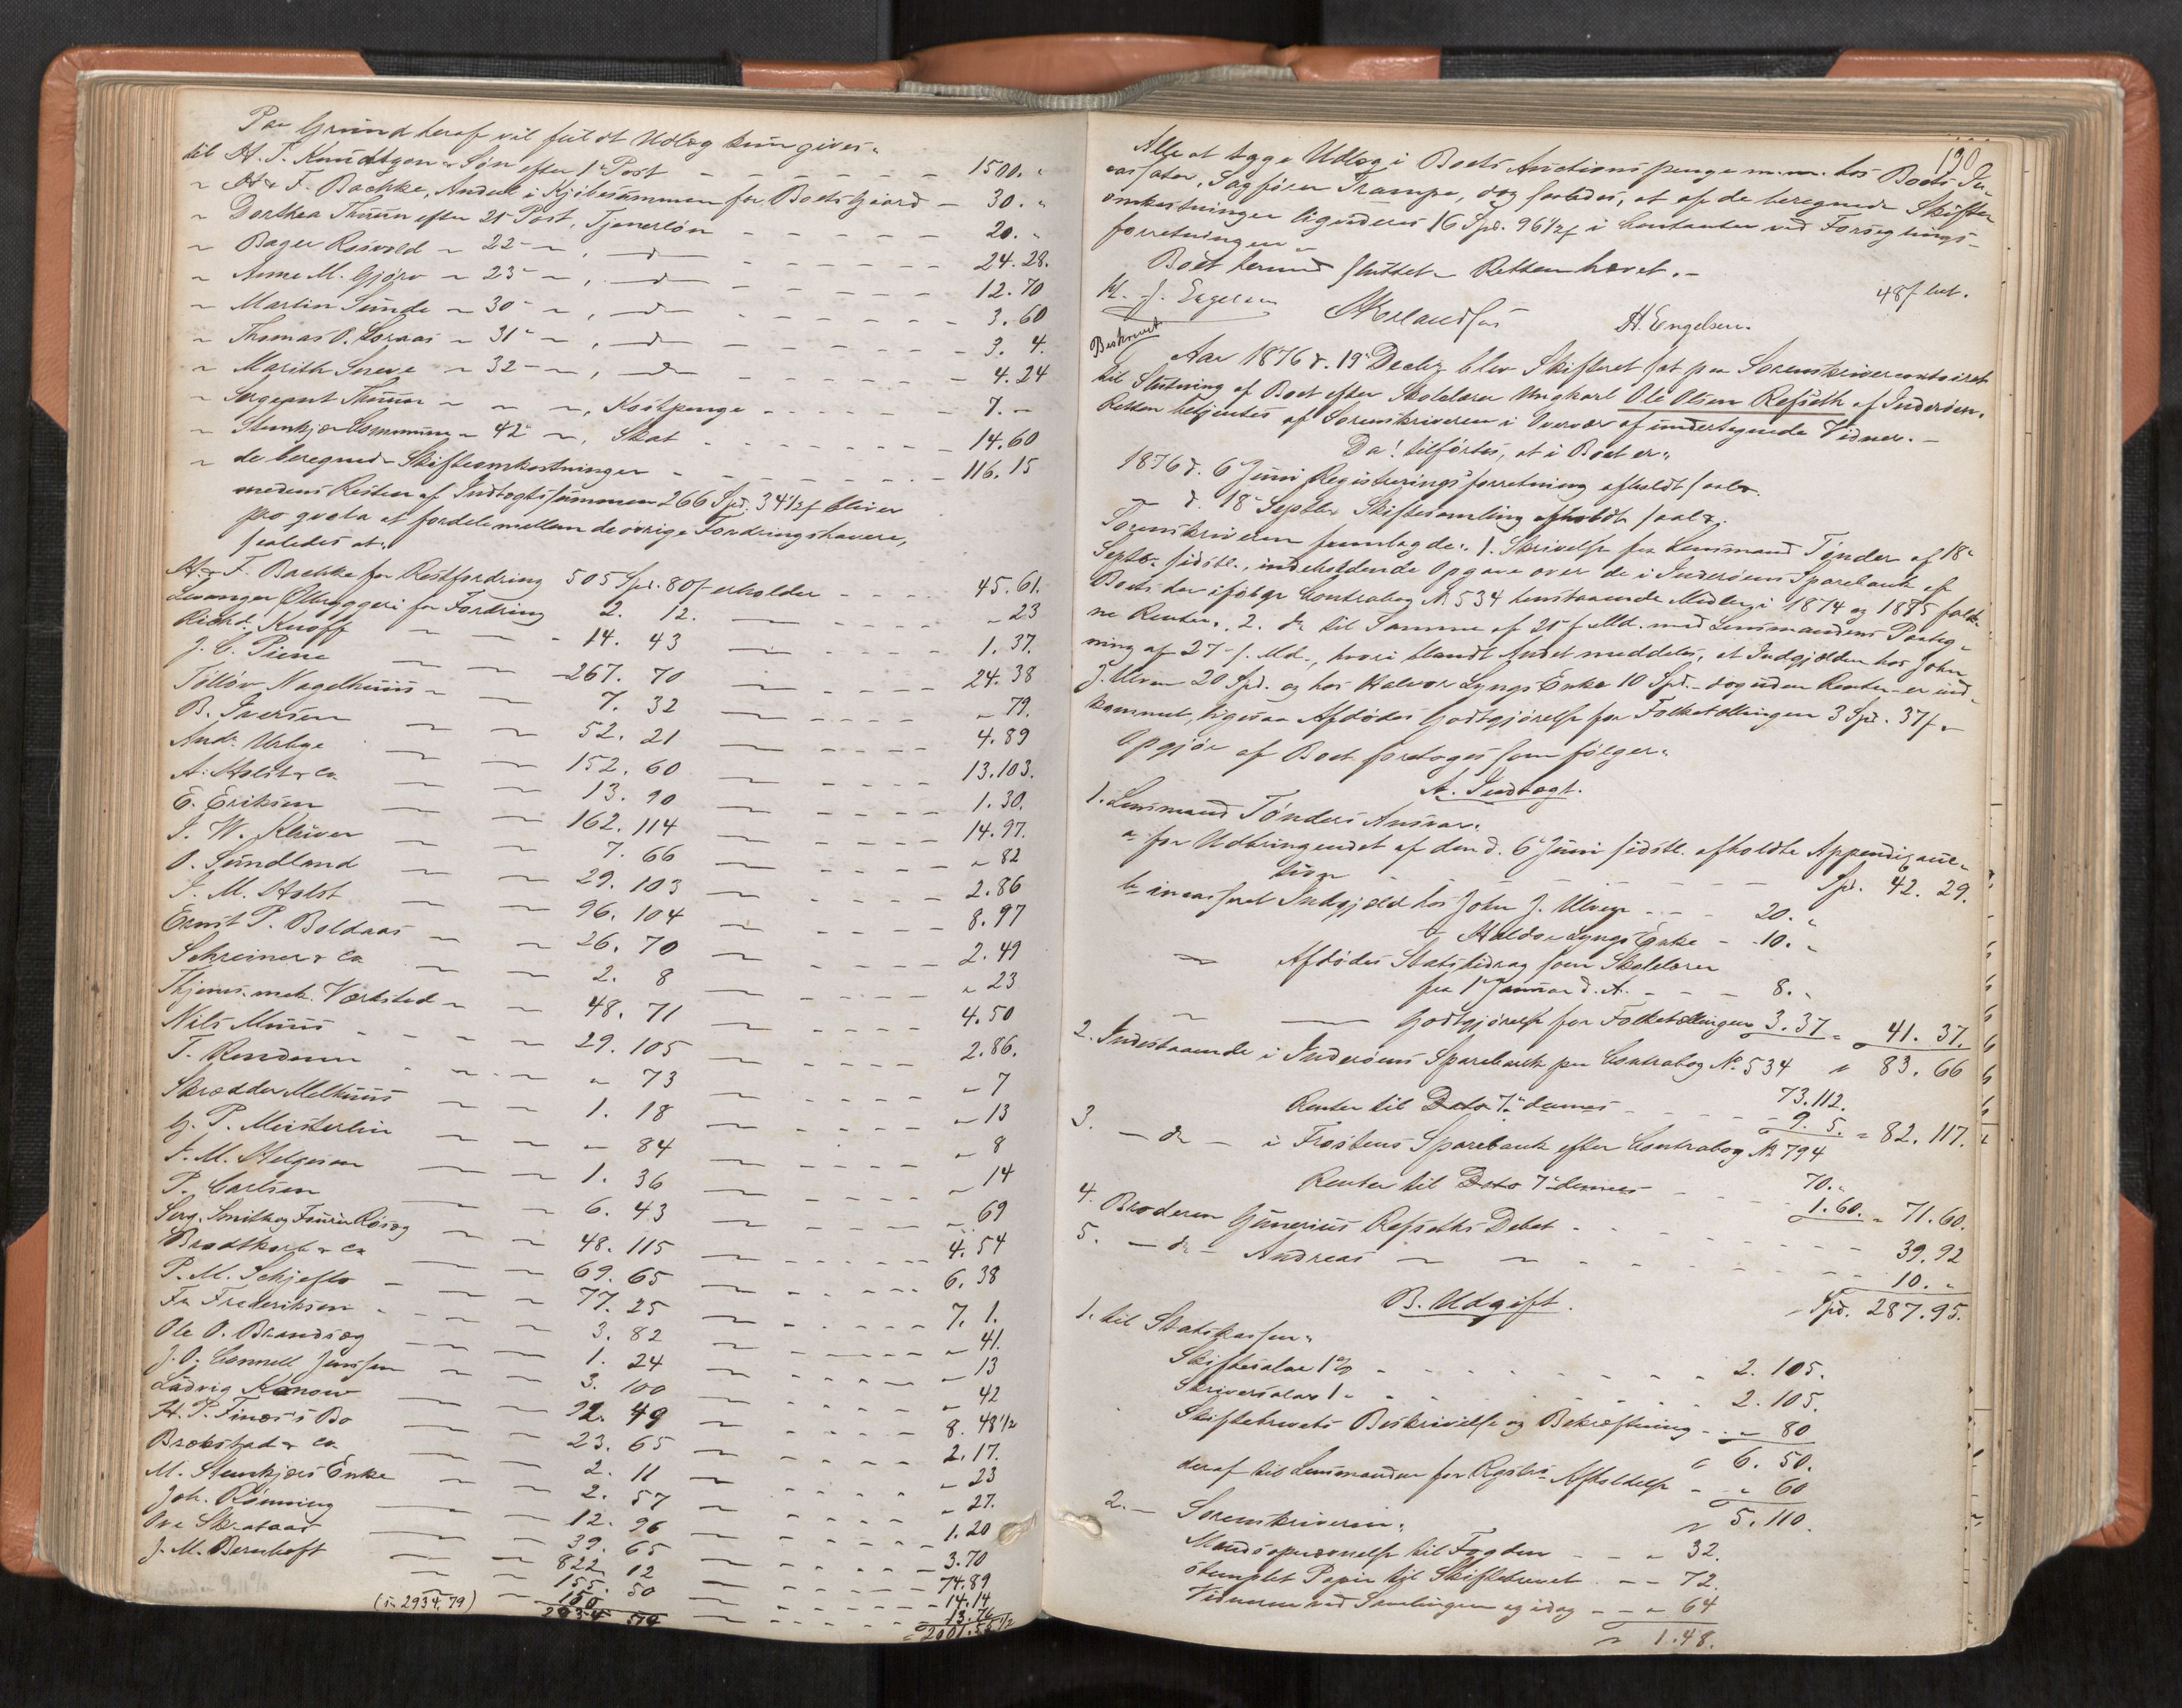 Paa Grund heraf vil fuldt Udlæg kun gives:
til H. T. Knudtzon & Søn efter 1e Post - - - - 1500. "
" H. & F. Bachke, Andeel i Kjøbesummen for Boets Gaard - 30. "
" Dorthea Thuun efter 21e Post, Tjenerløn - - - 20. "
" Bager Rosvold " 22 " " , do - - - 24. 28.
" Anne M. Gjørv " 23 " " , do - - - 12. 70
" Martin Sunde " 30 " " , do - - - 3. 60
" Thomas O. Loraas " 31 " " , do - - - 3. 4.
" Marith Sneve " 32 " " , do - - - 4. 24
" Sergeant Thuun " " " , Kostpenge - - - 7. "
" Stenkjær Commune " 42 " , Skat - - - 14. 60
" de beregnede Skifteomkostninger - - - 116. 15
medens Resten af Indtægtssummen 266 Spd. 34½ s bliver
pro qvota at fordele mellem de øvrige Fordringshavere,
saaledes at:
H. & F. Bachke for Restfordring 505 Spd. 80 s erholder - - - 45. 61.
Levanger Ølbryggeri for Fordring 2. 12. - - - " 23
Richd. Knoff 14. 43 - - - 1. 37.
J. C. Piene 267. 70 - - - 24. 38
Tølløv Nagelhuus 7. 32 - - - " 79.
B. Iversen 52. 21 - - - 4. 89
Andr. Urbye 152. 60 - - - 13. 103.
A. Holst & Co 13. 90 - - - 1. 30.
E. Eriksen 162. 114 - - - 14. 97.
I. W. Klüver 7. 66 - - - " 82
O. Sundland 29. 103 - - - 2. 86
I. M. Holst 96. 104 - - - 8. 97
Ernst P. Boldaas 26. 70 - - - 2. 49
Schreiner & Co 2. 8 - - - " 23
Thjems mek. Værksted 48. 71 - - - 4. 50
Nils Muus 29. 105 - - - 2. 86.
T. Rendenn " 73 - - - " 7
Skrædder Melhuus 1. 18 - - - " 13
G. P. Meisterlin " 84 - - - " 8
I. M. Helgesen 1. 36 - - - " 14
P. Carlsen 6. 43 - - - " 69
Serg. Smith og Røsæg 48. 115 - - - 4. 54
Brodtkorb & Co 69. 65 - - - 6. 38
P. M. Schjeflo 77. 25 - - - 7. 1.
Fr. Frederiksen 3. 82 - - - " 41.
Ole O. Brandsæg 1. 24 - - - " 13
J. O. Jenssen 3. 100 - - - " 42
Ludvig Konow 92. 49 - - - 8. 48½
H. P. Finæs's Bo 23. 65 - - - 2. 17.
Brobstad & Co 2. 11 - - - " 23
M. Stenkjærs Enke 2. 57 - - - " 27.
Joh. Rønning 12. 96 - - - 1. 20
Ove 39. 65 - - - 3. 70
J. M. Bernhoft 822. 12 - - - 74. 89
155. 50 - - - 14. 14
150 - - - 13. 76
(: 2934. 79) 2934 79 2001. 55½
190
Alle at tage Udlæg i Boets Auctionspenge m. m. hos Boets In-
cassator, Sagfører Trampe, dog saaledes, at af de beregnede Skifte-
omkostninger ligeledes 16 Spd. 96½ s i Contanter ved Forseglings-
forretningen.
Boet hermed sluttet. Retten hævet. -
48 s bet.
H. J. Engelsen Erlandsen H. Engelsen.
Beskrevet
Aar 1876 d. 19e Decbr. blev Skifteret sat paa Sorenskrivercontoiret
til Slutning af Boet efter Skolelærer Ungkarl Ole Olsen Refseth af Inderøen.
Retten betjentes af Sorenskriveren i Overvær af undertegnede Vidner. -
Da! tilførtes, at i Boet er:
1876 d. 6e Juni Registreringsforretning afholdt saal.
" d. 18e Septbr. Skiftesamling afholdt saal.
Sorenskriveren fremlagde: 1. Skrivelse fra Lensmand Tønder af 18e
Septbr. sidstl., indeholdende Opgave over de i Inderøens Sparebank af
Boets der ifølge Contrabog № 534 henstaaende Midler i 1874 og 1875 fald-
ne Renter. 2. do til Samme af 25 f. Md. med Lensmandens Paateg-
ning af 27 s. Md., hvori blandt Andet meddeles, at Indgjelden hos John
J. Ulven 20 Spd. og hos Halvor Lyngs Enke 10 Spd. - dog uden Renter - er ind-
kommet, ligesaa Afdødes Godtgjørelse for Folketællingen 3 Spd. 37 s. -
Opgjør af Boet foretages som følger:
A. Indtægt.
1. Lensmand Tønders Ansvar:
a for Udbringendet af den d. 6e Juni sidstl. afholdte Appendixauc-
tion - - - Spd. 42. 29.
b incasseret Indgjeld hos John J. Ulven - - - 20. "
" Haldor Lyngs Enke - 10. "
" Afdødes Statsbidrag som Skolelærer
fra 1e Januar d. A. - - - 8. "
" Godtgjørelse for Folketællingen 3. 37 = 41. 37.
" 83. 66
2. Indestaaende i Inderøens Sparebank paa Contrabog № 534 73. 112.
Renter til Dato 7e dennes - - - 9. 5. = 82. 117.
3. - do - i Frostens Sparebank efter Contrabog № 794 70. "
Renter til Dato 7e dennes - - - 1. 60. " 71. 60.
4. Broderen Gunerius Refseths Debet - - - 39. 92
5. - do - Andreas " " - - - 10. "
Spd. 287. 95.
B. Udgift.
1. til Statskassen:
Skiftesalar 1% - - - 2. 105.
Skriversalar 1 " - - - 2. 105.
Skiftebrevets Beskrivelse og Bekræftning - " 80
" 6. 50.
deraf til Lensmanden for Regstrs Afholdelse - " 60
" 5. 110.
2. - Sorenskriveren:
Mandsopnævnelse til Fogden - - " 32.
stemplet Papir til Skiftebrevet - - 72.
Vidnerne ved Samlingen og idag - - " 64
" 1. 48.